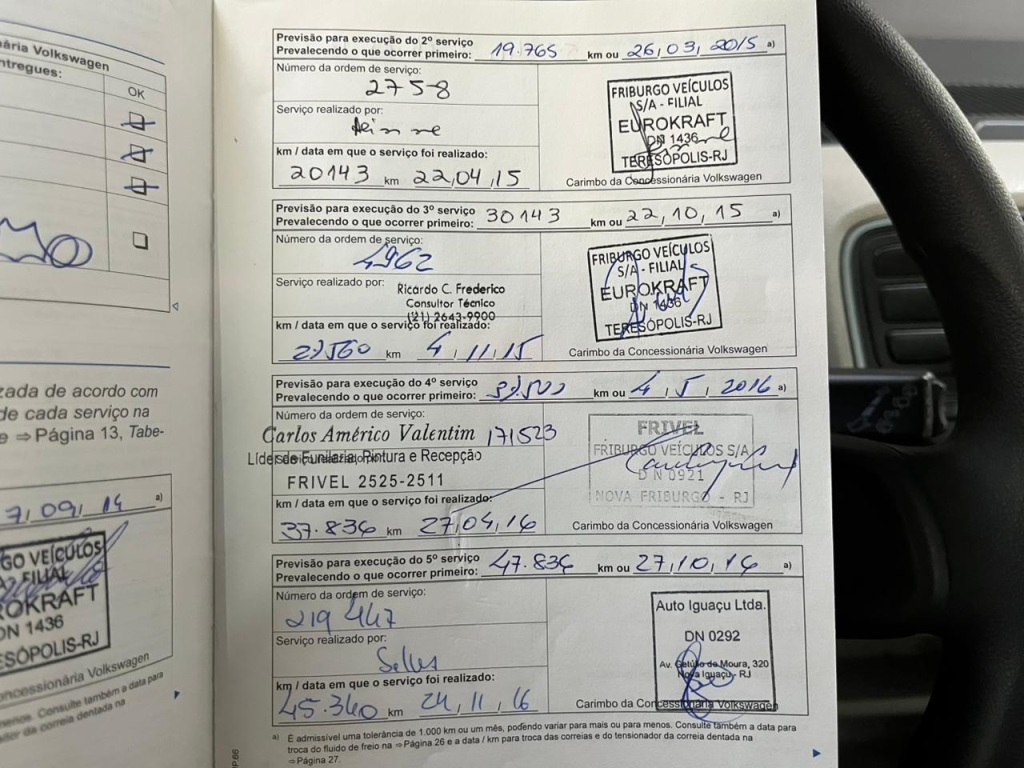 ária Volkswagen
ntregues:
OK
zada de acordo com
de cada serviço na
e ⇒ Página 13, Tabe-
7,09, 14 a)
GO VEÍCULOS
A - FILIAL
ROKRAFT
DN 1436
ESÓPOLIS-RJ
oncessionária Volkswagen
menos. Consulte também a data para
ador da correia dentada na
Previsão para execução do 2º serviço
Prevalecendo o que ocorrer primeiro: 19.765 km ou 26,03, 2015 a)
Número da ordem de serviço:
275-8
Serviço realizado por:
km / data em que o serviço foi realizado:
20143 km 22,04,15
FRIBURGO VEÍCULOS
S/A - FILIAL
EUROKRAFT
DN 1436
TERESÓPOLIS-RJ
Carimbo da Concessionária Volkswagen
Previsão para execução do 3º serviço
Prevalecendo o que ocorrer primeiro: 30143 km ou 22,10,15 a)
Número da ordem de serviço:
4962
Serviço realizado por:
Ricardo C. Frederico
Consultor Técnico
(21) 2643-9900
km / data em que o serviço foi realizado:
27560 km 4,11,15
FRIBURGO VEÍCULOS
S/A - FILIAL
EUROKRAFT
DN 1436
TERESÓPOLIS-RJ
Carimbo da Concessionária Volkswagen
Previsão para execução do 4º serviço
Prevalecendo o que ocorrer primeiro: km ou 4,5,2016 a)
Número da ordem de serviço:
Carlos Américo Valentim 171523
Líder de Funilaria, Pintura e Recepção
FRIVEL 2525-2511
km / data em que o serviço foi realizado:
37.836 km 27,04,16
FRIVEL
FRIBURGO VEÍCULOS S/A
DN 0921
NOVA FRIBURGO - RJ
Carimbo da Concessionária Volkswagen
Previsão para execução do 5º serviço
Prevalecendo o que ocorrer primeiro: 47.836 km ou 27,10,16 a)
Número da ordem de serviço:
219 447
Serviço realizado por:
Selles
km / data em que o serviço foi realizado:
45.340 km 24,11,16
Auto Iguaçu Ltda.
DN 0292
Av. Getúlio de Moura, 320
Nova Iguaçu - RJ
Carimbo da Concessionária Volkswagen
a) É admissível uma tolerância de 1.000 km ou um mês, podendo variar para mais ou para menos. Consulte também a data para
troca do fluido de freio na ⇒ Página 26 e a data / km para troca das correias e do tensionador da correia dentada na
⇒ Página 27.